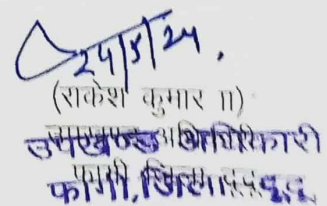 24/5/24.
(राकेश कुमार II)
उपखण्ड अधिकारी
फागी, जिला दूदू